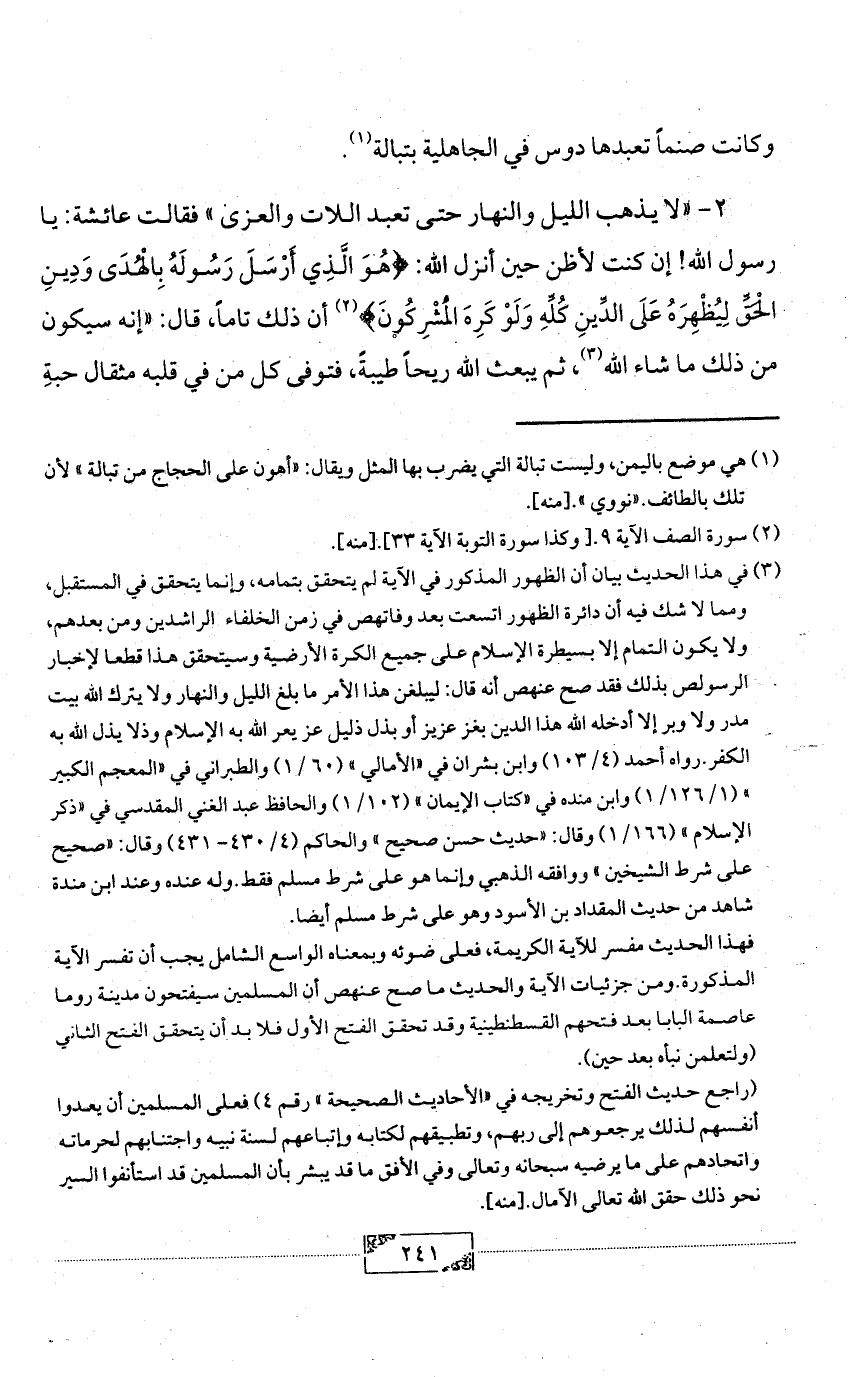 وكانت صنماً تعبدها دوس في الجاهلية بتبالة(١).
٢- «لا يذهب الليل والنهار حتى تعبد اللات والعزى» فقالت عائشة: يا
رسول الله! إن كنت لأظن حين أنزل الله: ﴿هُوَ الَّذِي أَرْسَلَ رَسُولَهُ بِالْهُدَى وَدِينِ
الْحَقِّ لِيُظْهِرَهُ عَلَى الدِّينِ كُلِّهِ وَلَوْ كَرِهَ الْمُشْرِكُونَ﴾(٢) أن ذلك تاماً، قال: «إنه سيكون
من ذلك ما شاء الله(٣)، ثم يبعث الله ريحاً طيبةً، فتوفى كل من في قلبه مثقال حبةِ
(١) هي موضع باليمن، وليست تبالة التي يضرب بها المثل ويقال: «أهون على الحجاج من تبالة» لأن
تلك بالطائف.«نووي».[منه].
(٢) سورة الصف الآية ٩.[ وكذا سورة التوبة الآية ٣٣].[منه].
(٣) في هذا الحديث بيان أن الظهور المذكور في الآية لم يتحقق بتمامه، وإنما يتحقق في المستقبل،
ومما لا شك فيه أن دائرة الظهور اتسعت بعد وفاتهص في زمن الخلفاء الراشدين ومن بعدهم،
ولا يكون التمام إلا بسيطرة الإسلام على جميع الكرة الأرضية وسيتحقق هذا قطعا لإخبار
الرسولص بذلك فقد صح عنهص أنه قال: ليبلغن هذا الأمر ما بلغ الليل والنهار ولا يترك الله بيت
مدر ولا وبر إلا أدخله الله هذا الدين بغز عزيز أو بذل ذليل عز يعر الله به الإسلام وذلا يذل الله به
الكفر.رواه أحمد (٤/ ١٠٣) وابن بشران في «الأمالي» (٦٠/ ١) والطبراني في «المعجم الكبير
» (١/ ١٢٦/ ١) وابن منده في «كتاب الإيمان» (١٠٢/ ١) والحافظ عبد الغني المقدسي في «ذكر
الإسلام» (١٦٦/ ١) وقال: «حديث حسن صحيح» والحاكم (٤/ ٤٣٠- ٤٣١) وقال: «صحيح
على شرط الشيخين» ووافقه الذهبي وإنما هو على شرط مسلم فقط.وله عنده وعند ابن مندة
شاهد من حديث المقداد بن الأسود وهو على شرط مسلم أيضا.
فهذا الحديث مفسر للآية الكريمة، فعلى ضوئه وبمعناه الواسع الشامل يجب أن تفسر الآية
المذكورة.ومن جزئيات الآية والحديث ما صح عنهص أن المسلمين سيفتحون مدينة روما
عاصمة البابا بعد فتحهم القسطنطينية وقد تحقق الفتح الأول فلا بد أن يتحقق الفتح الثاني
(ولتعلمن نبأه بعد حين).
(راجع حديث الفتح وتخريجه في «الأحاديث الصحيحة» رقم ٤) فعلى المسلمين أن يعدوا
أنفسهم لذلك يرجعوهم إلى ربهم، وتطبيقهم لكتابه وإتباعهم لسنة نبيه واجتنابهم لحرماته
واتحادهم على ما يرضيه سبحانه وتعالى وفي الأفق ما قد يبشر بأن المسلمين قد استأنفوا السير
نحو ذلك حقق الله تعالى الآمال.[منه].
٢٤١